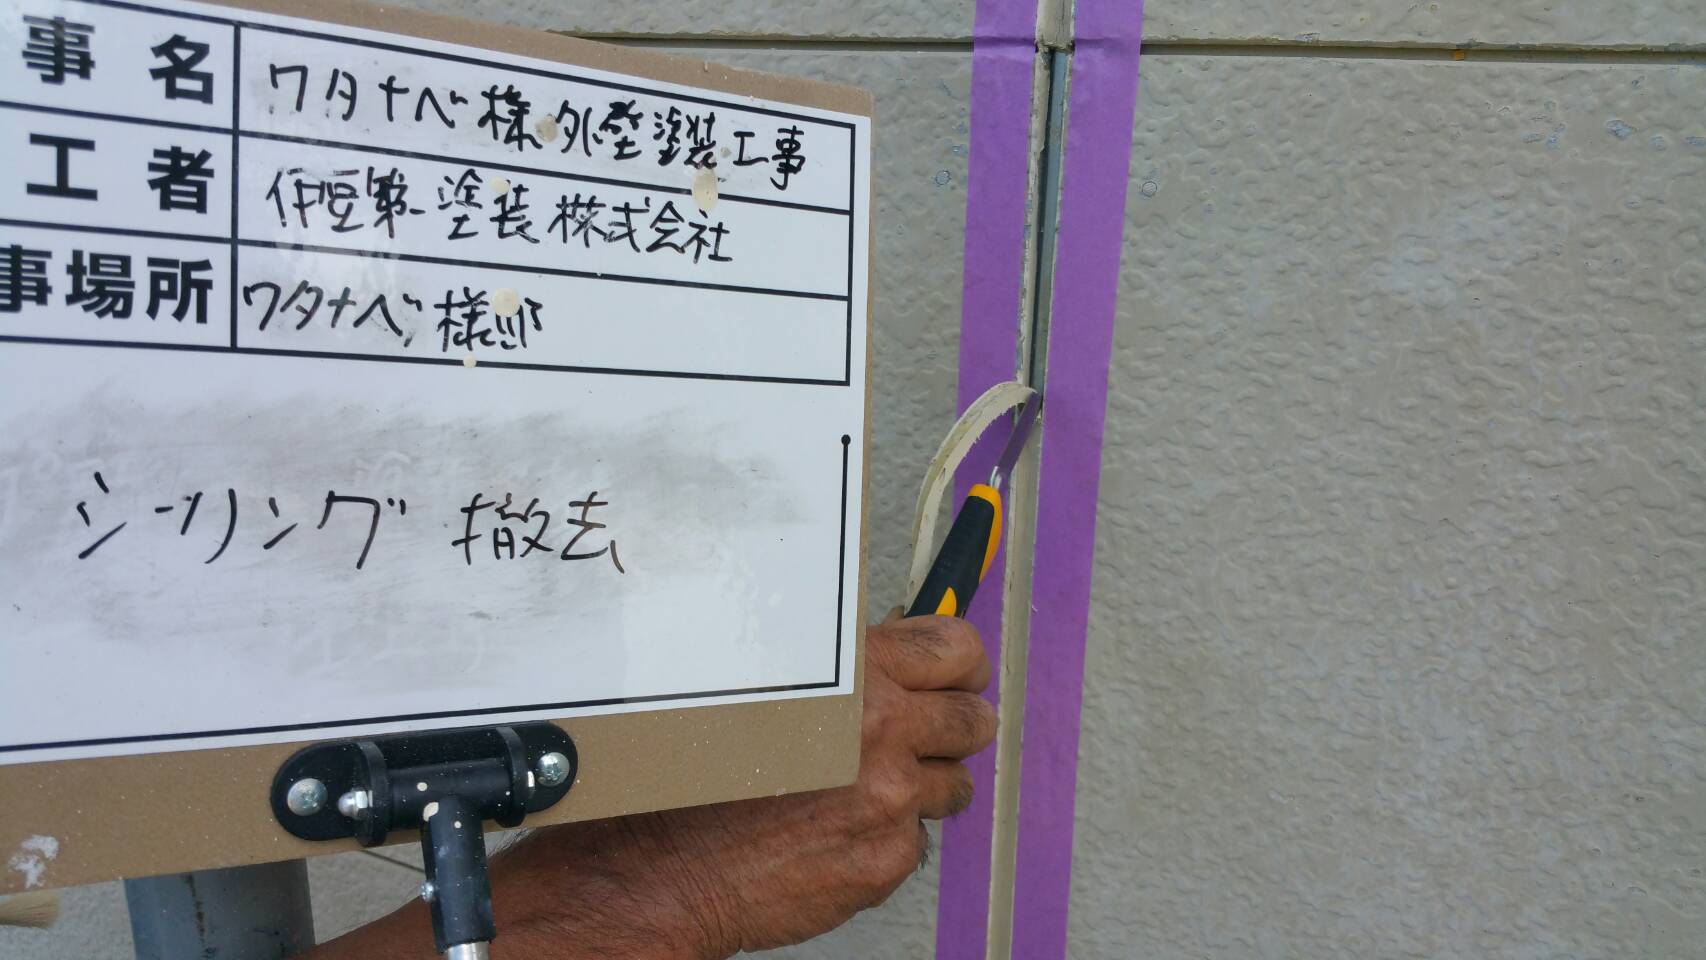 事名 ワタナベ様外壁塗装工事
工者 伊豆第一塗装株式会社
事場所 ワタナベ様邸
シーリング撤去